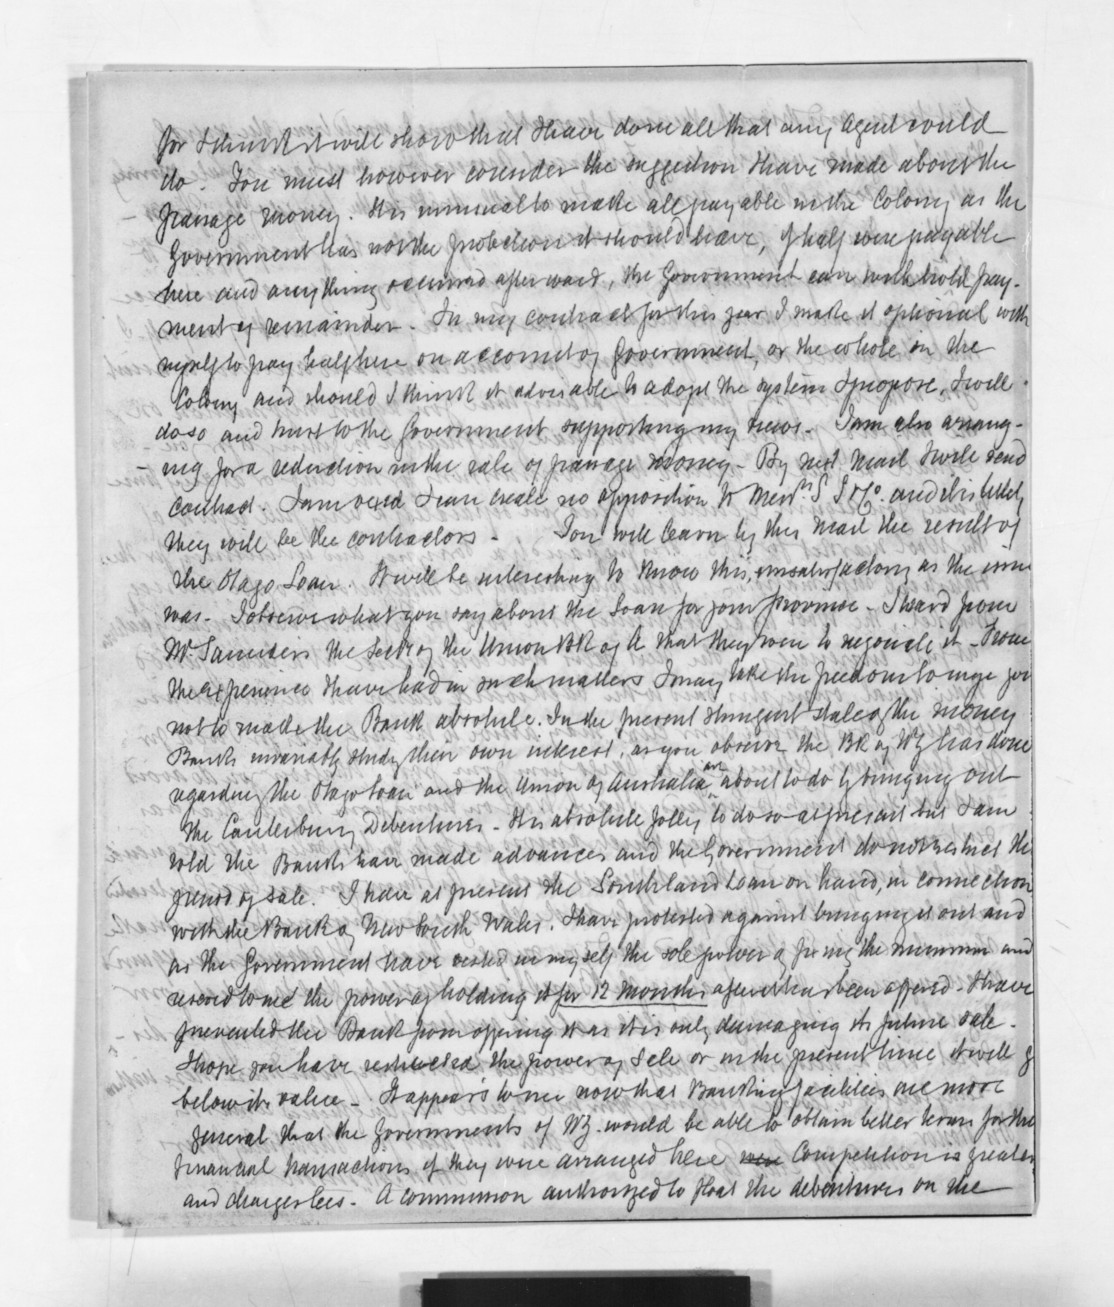 for I think it will show that I have done all that any Agent could
do. You must however consider the suggestion I have made about the
passage money. It is unusual to make all payable in the Colony as the
Government has not the protection it should have, if half were payable
here and anything occurred afterward, the Government can withhold pay-
ment of remainder. In my contract for this year I make it optional with
myself to pay half here on account of Government, or the whole in the
Colony and should I think it advisable to adopt the system I propose, I will
do so and trust to the Government supporting my views. I am also arrang-
-ing for a reduction in the rate of passage money - By next Mail I will send
Contract. I am I can create no opposition to Messrs S S & Co. and it is likely
they will be the contractors - You will learn by this Mail the result of
the Otago Loan. It will be interesting to know this, unsatisfactory as the issue
was. I observe what you say about the Loan for your Province - I heard from
Mr Saunders the Secty of the Union BK of A that they were to negociate it - From
the experience I have had in such matters I may take the freedom to urge you
not to make the Bank absolute. In the present stringent state of the money
Banks invariably study their own interest, as you observe the BK of NZ has done
regarding the Otago Loan and the Union of Australia are about to do by bringing out
the Canterbury Debentures - It is absolute folly to do so at present but I am
told the Banks have made advances and the Government do not restrict the
period of sale. I have at present the Southland Loan on hand, in connection
with the Bank of New South Wales. I have protested against bringing it out and
as the Government have vested in myself the sole power of fixing the minimum and
reserved to me the power of holding it for 12 months after it has been offered - I have
prevented the Bank from offering it as it is only damaging its future sale -
I hope you have restricted the power of Sale or in the present time it will go
below its value - It appears to me now that Banking facilities are more
general that the Governments of NZ. would be able to obtain better terms for the
financial transactions if they were arranged here Competition is greater
and charges less - A commission authorized to float the debentures on the